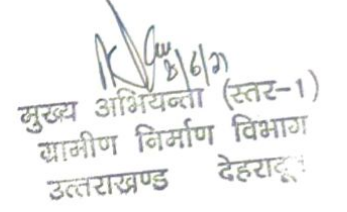 8/6/21
मुख्य अभियन्ता (स्तर-1)
ग्रामीण निर्माण विभाग
उत्तराखण्ड देहरादून